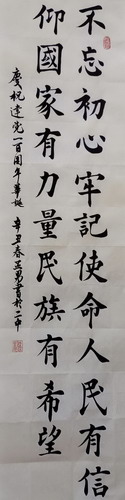 不忘初心牢記使命人民有信
仰國家有力量民族有希望
慶祝建党一百周年華誕 辛丑春正勇書於二中